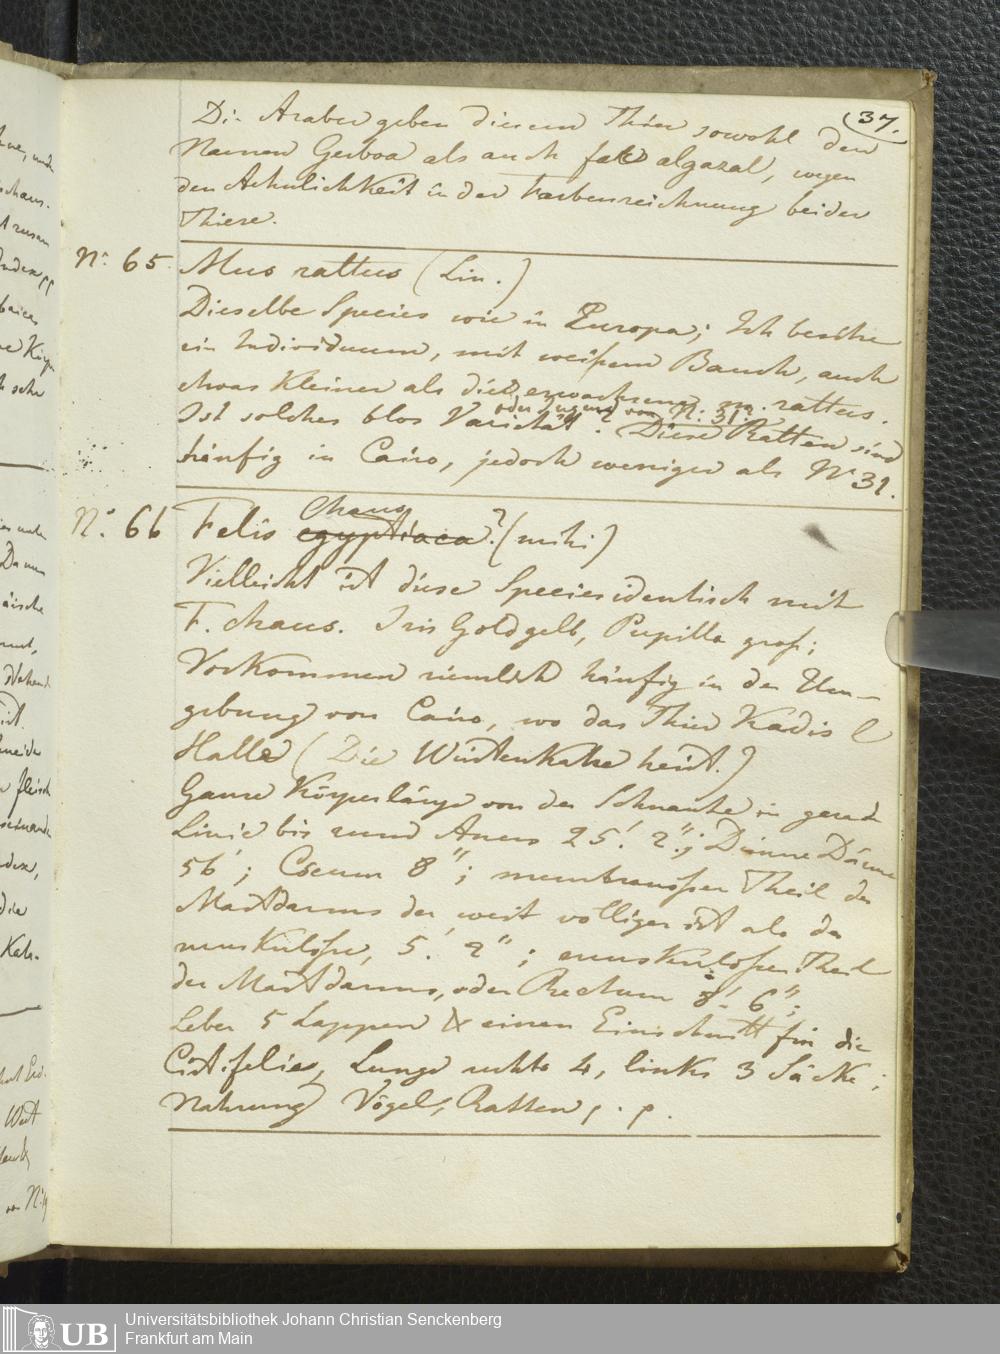 37.
Die Araber geben diesem Thier sowohl den
Namen Gerboa als auch algazal, wegen
den Aehnlichkeit in der Farbenzeichnung beider
Thiere.
No. 65 Mus rattus (Lin.)
Dieselbe Species wie in Europa; Ich besitze
ein Individuum, mit weißem Bauch, auch
etwas kleiner als die erwachsene m. rattus.
oder Jugend von N: 31.?
Ist solches blos Varietät. Diese Ratten sind
häufig in Cairo, jedoch weniger als No 31.
No. 66 Felis egyptiaca? (mihi)
Chaus
Vielleicht ist diese Species identisch mit
F. chaus. Iris Goldgelb, Pupille groß;
Vorkommen ziemlich häufig in der Um-
gebung von Cairo, wo das Thier Kadis l
Halle (Die Wüstenkatze heist.)
Ganze Körperlänge von der Schnautze in gerad
Linie bis zum Anus 25.' 2."; Dünne Därme
56'; Cöcum 8"; membranoser Theil des
Mastdarms der weit völliger ist als der
muskulöse, 5.' 2"; muskulöser Theil
des Mastdarms, oder Rectum 8' 6";
Leber 5 Lappen & einen Einschnitt für die
Cist. felis, Lunge rechts 4, links 3 Säcke;
Nahrung Vögel, Ratten p. p.
UB
Universitätsbibliothek Johann Christian Senckenberg
Frankfurt am Main